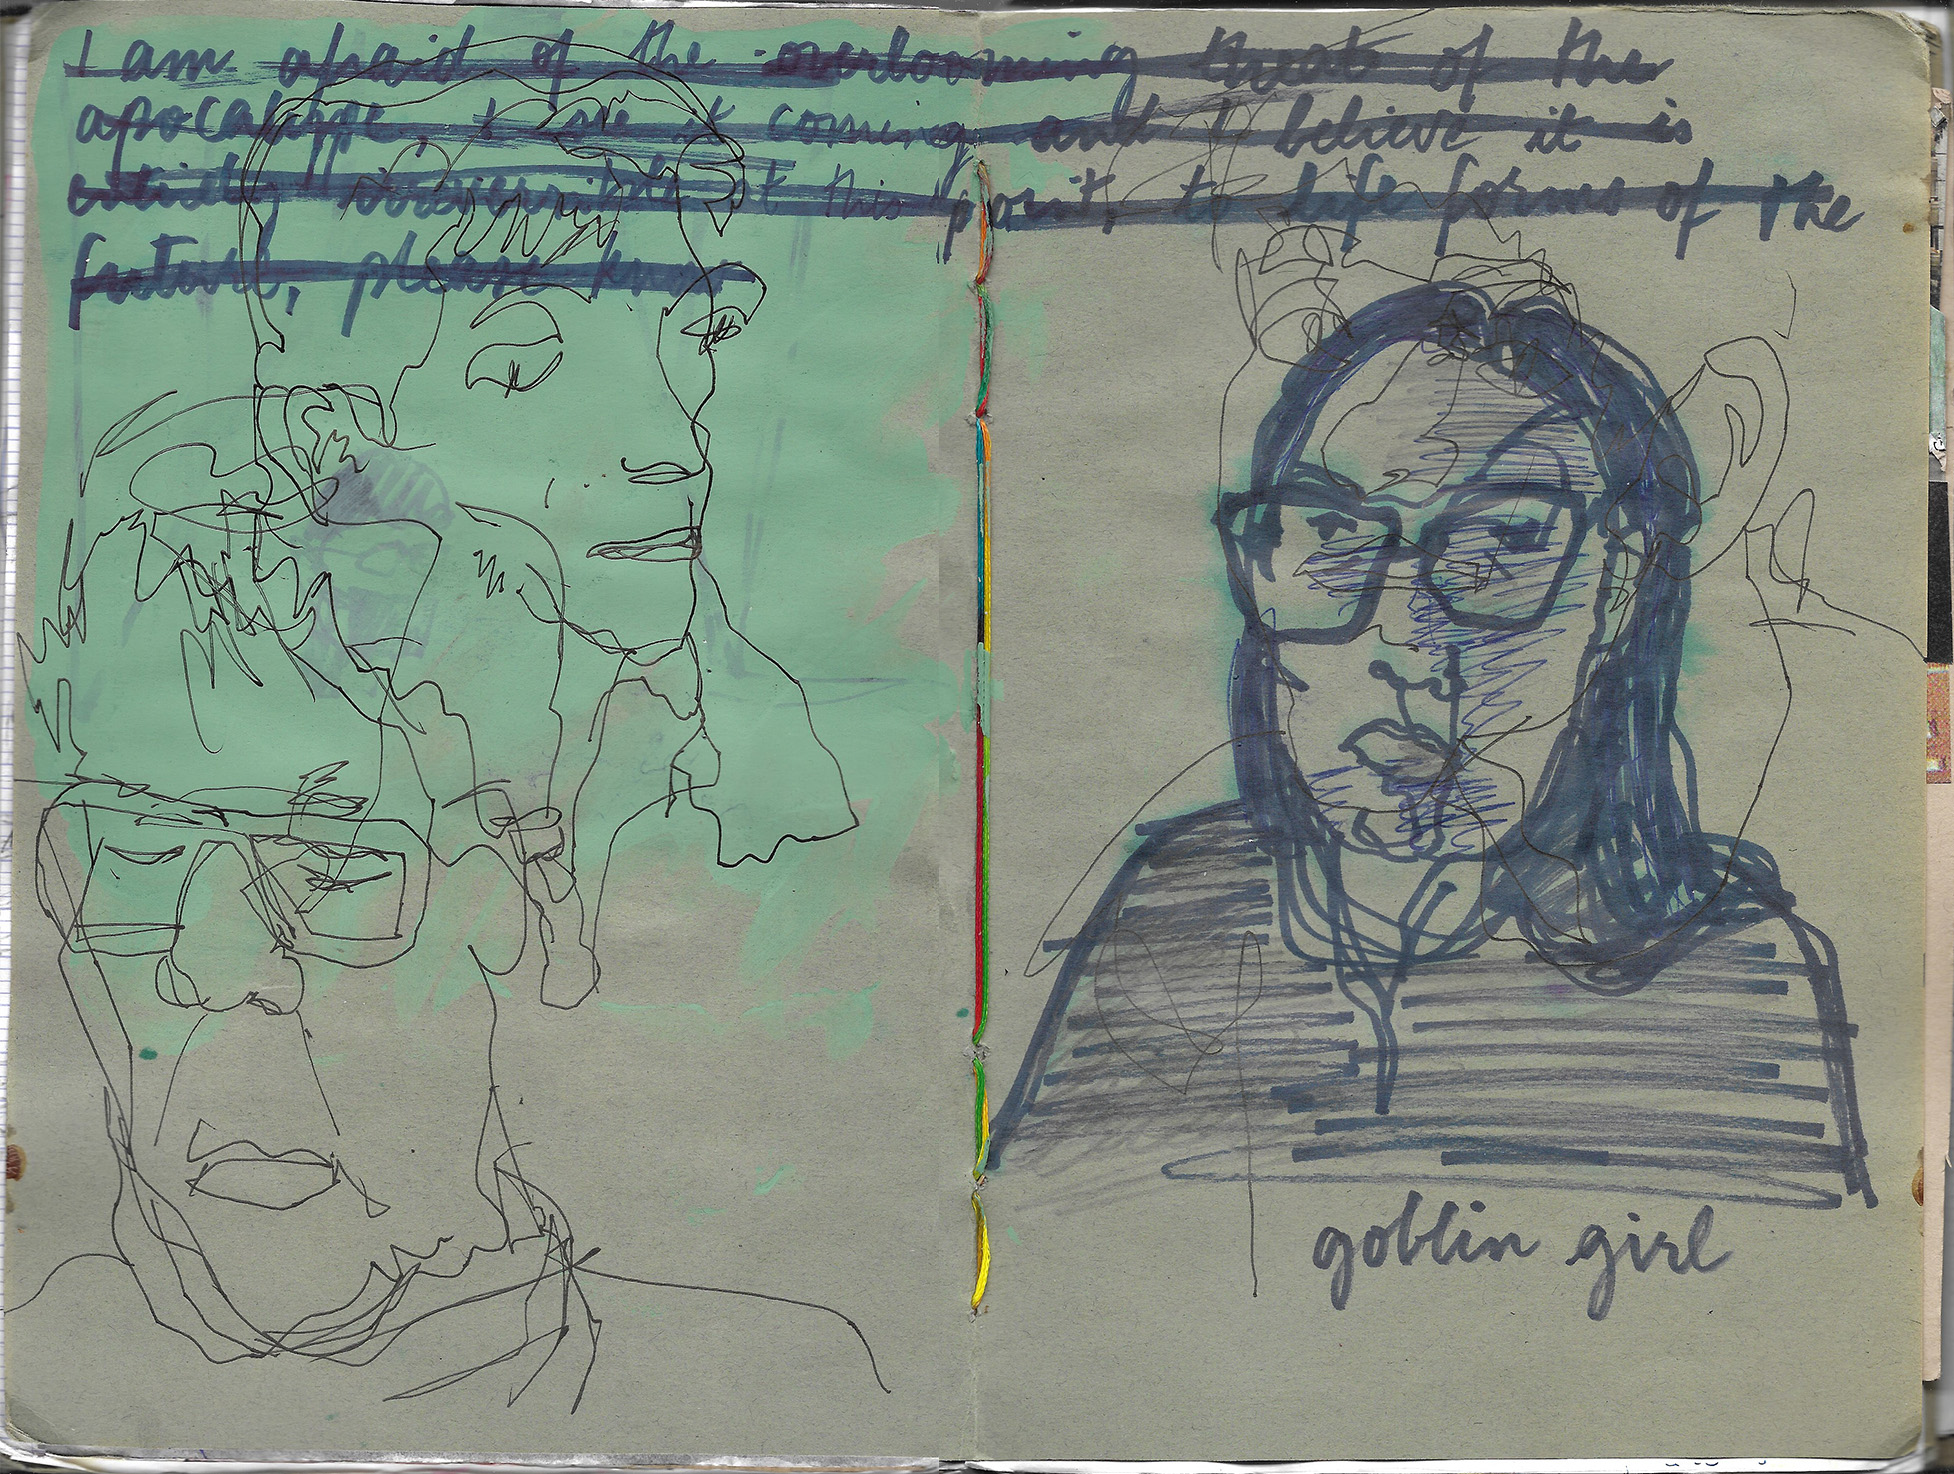 I am afraid of the overlooming threat of the
apocalypse, I see it coming and I believe it is
entirely irreversible at this point, to life forms of the
future, please know
goblin girl